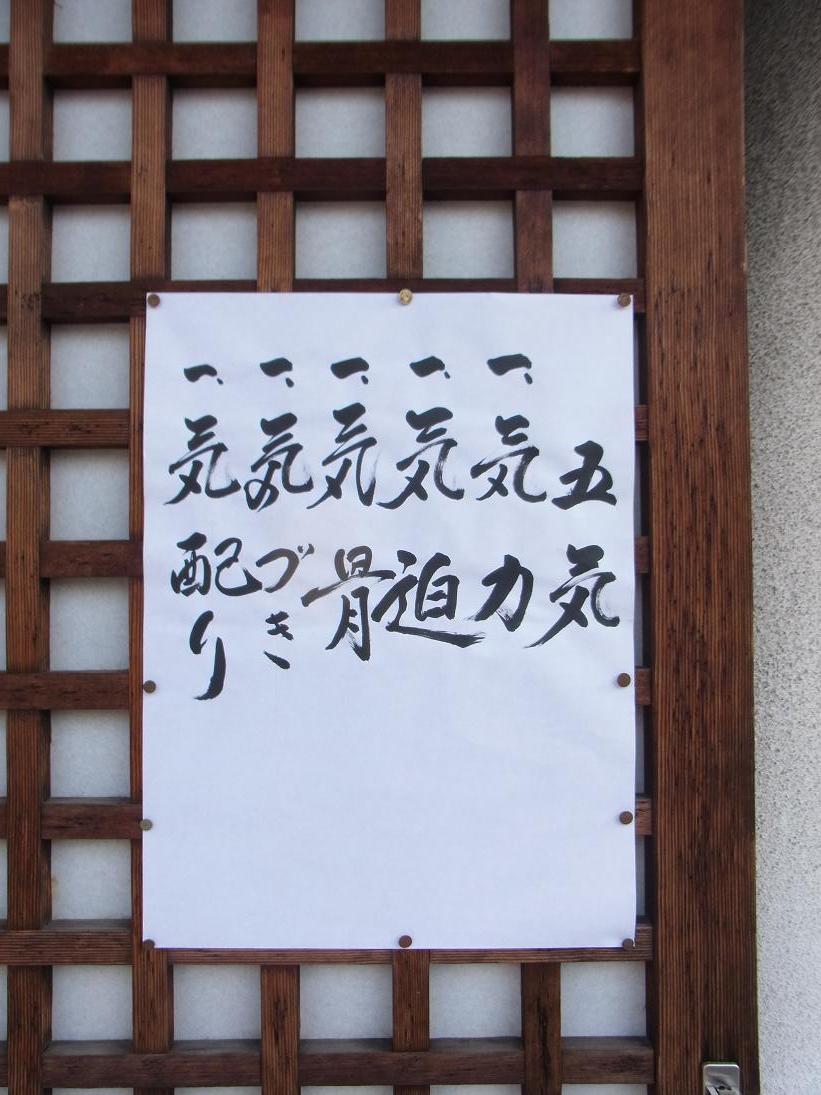 五気
一、気力
一、気迫
一、気骨
一、気のづき
一、気配り